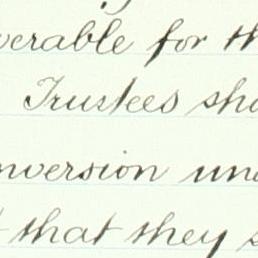 verable for th
Trustees sho
nversion und
t that they s